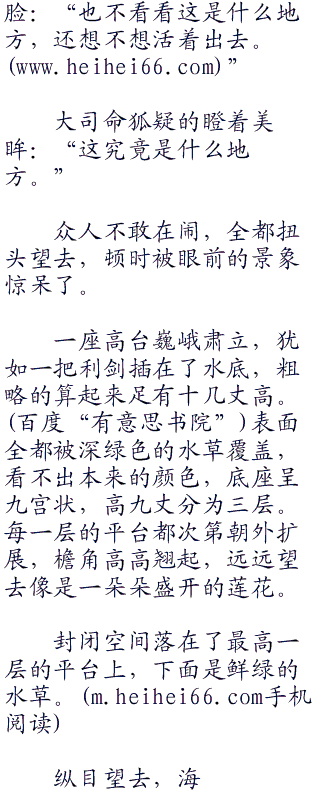 脸：“也不看看这是什么地
方，还想不想活着出去。
(www.heihei66.com)”
大司命狐疑的瞪着美
眸：“这究竟是什么地
方。”
众人不敢在闹，全都扭
头望去，顿时被眼前的景象
惊呆了。
一座高台巍峨肃立，犹
如一把利剑插在了水底，粗
略的算起来足有十几丈高。
(百度“有意思书院”)表面
全都被深绿色的水草覆盖，
看不出本来的颜色，底座呈
九宫状，高九丈分为三层。
每一层的平台都次第朝外扩
展，檐角高高翘起，远远望
去像是一朵朵盛开的莲花。
封闭空间落在了最高一
层的平台上，下面是鲜绿的
水草。(m.heihei66.com手机
阅读)
纵目望去，海